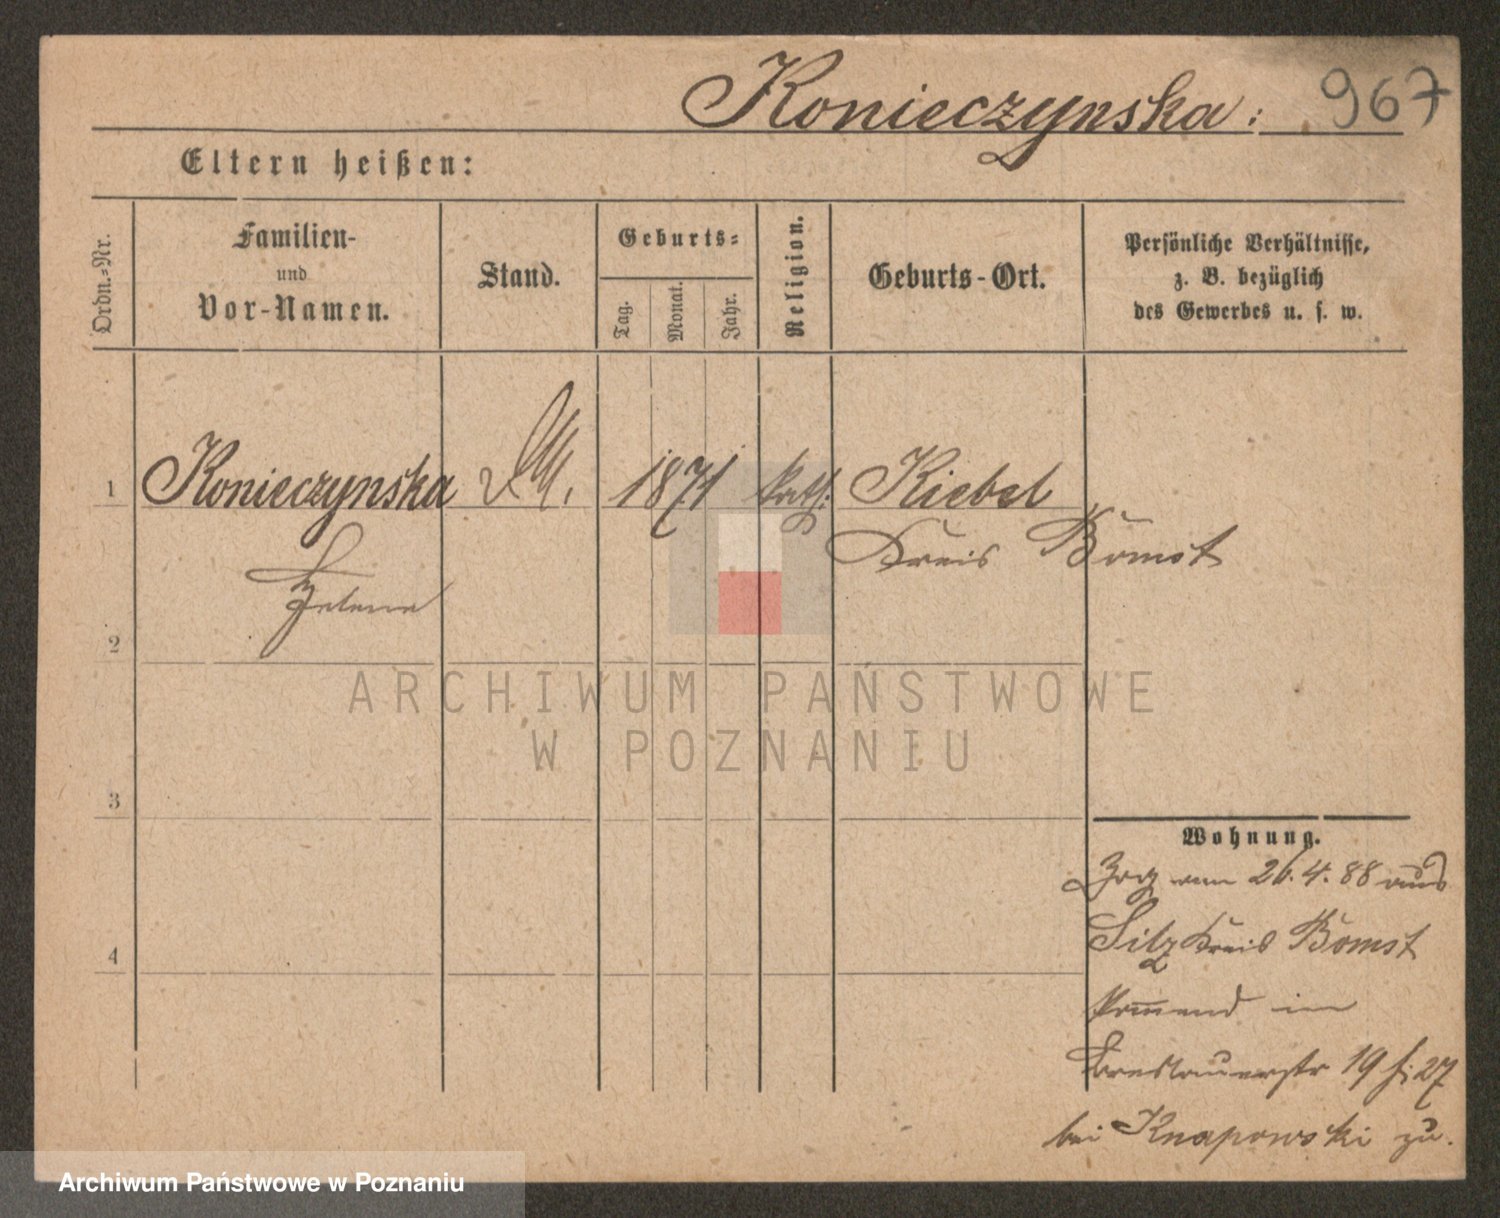 Konieczynska: 967
Eltern heißen:
Ordn.-Nr.
Familien-
und
Vor-Namen.
Stand.
Geburts-
Tag.
Monat.
Jahr.
Religion.
Geburts-Ort.
Persönliche Verhältnisse,
z. B. bezüglich
des Gewerbes u. s. w.
1 Konieczynska 1871 kath: Kiebel
Kreis Bomst
Helene
2
3
4
Wohnung.
am 26.4.88 aus
Kreis Bomst
kommend in
Breslauerstr 19 27
bei Knapowski zu.
ARCHIWUM PAŃSTWOWE
W POZNANIU
Archiwum Państwowe w Poznaniu